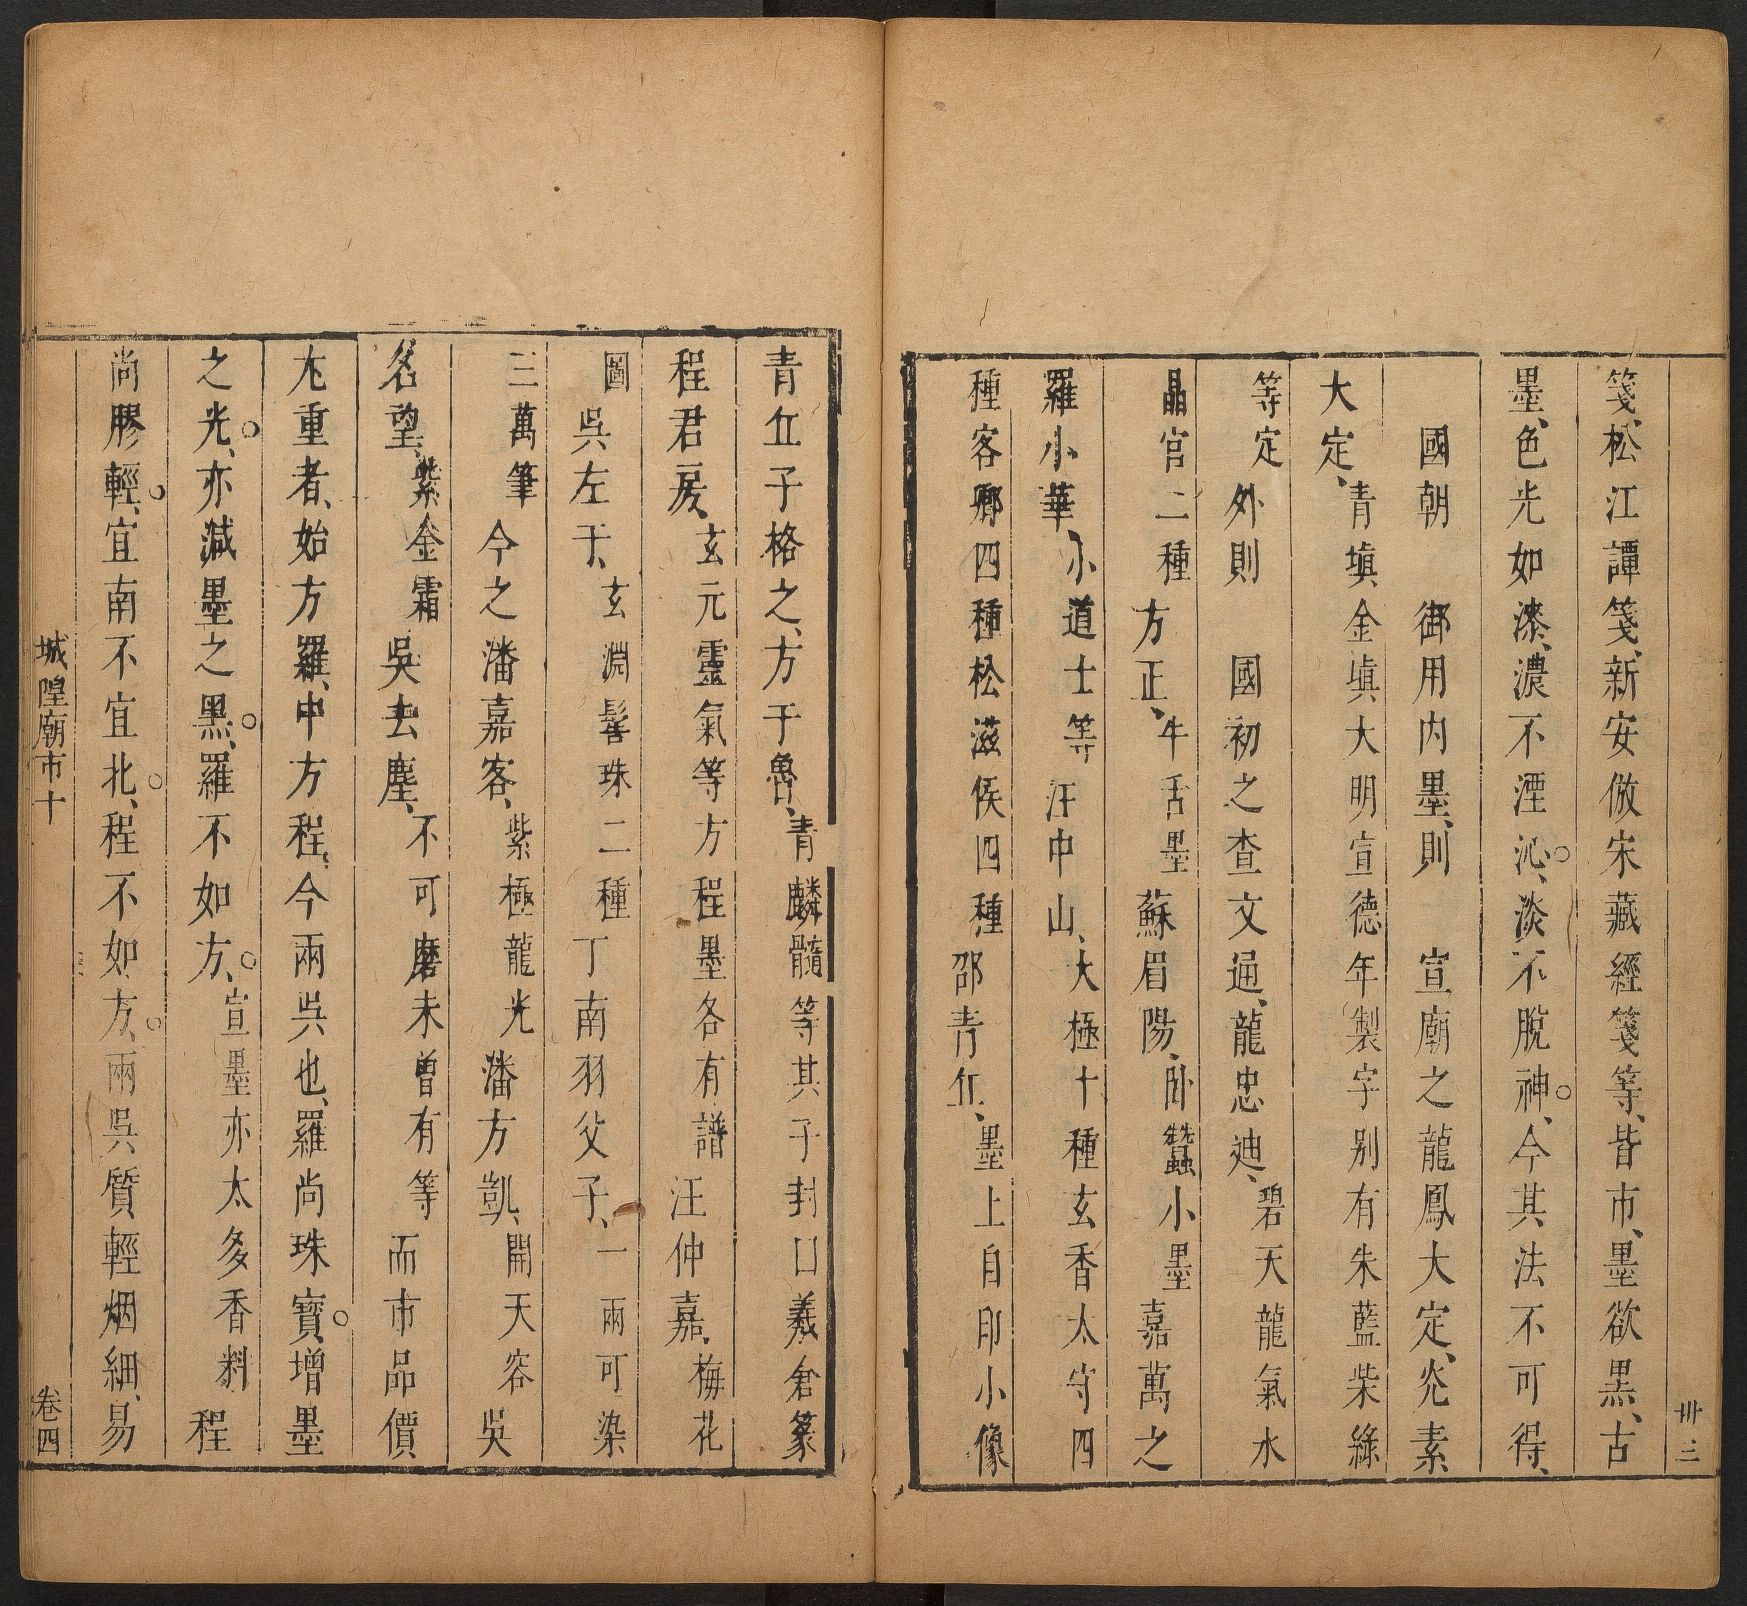 卅三
箋、松江譚箋、新安倣宋藏經箋等、皆市、墨欲黑、古
墨、色光如漆、濃不湮沁、淡不脫神、今其法不可得、
國朝　御用內墨、則　宣廟之龍鳳大定、光素
大定、青填金填大明宣德年製字別有朱藍柴綠
等定外則　國初之查文通、龍忠迪、碧天龍氣水
晶宮二種方正、牛舌墨蘇眉陽、卧蠶小墨嘉萬之
羅小華、小道士等汪中山、大極十種玄香太守四
種客卿四種松滋侯四種邵青丘、墨上自印小像
青丘子格之、方于魯、青麟髓等其子封口羲倉篆
程君房、玄元靈氣等方程墨各有譜汪仲嘉、梅花
圖吳左于、玄淵髻珠二種丁南羽父子、一兩可染
三萬筆今之潘嘉客、紫極龍光潘方凱、開天容吳
名望、紫金霜吳去塵、不可磨未曾有等而市品價
尤重者、始方羅、中方程、今兩吳也、羅尚珠寶、增墨
之光、亦減墨之黑、羅不如方、宣墨亦太多香料程
尚膠輕、宜南不宜北、程不如方、兩吳質輕烟細、易
城隍廟市十　卷四